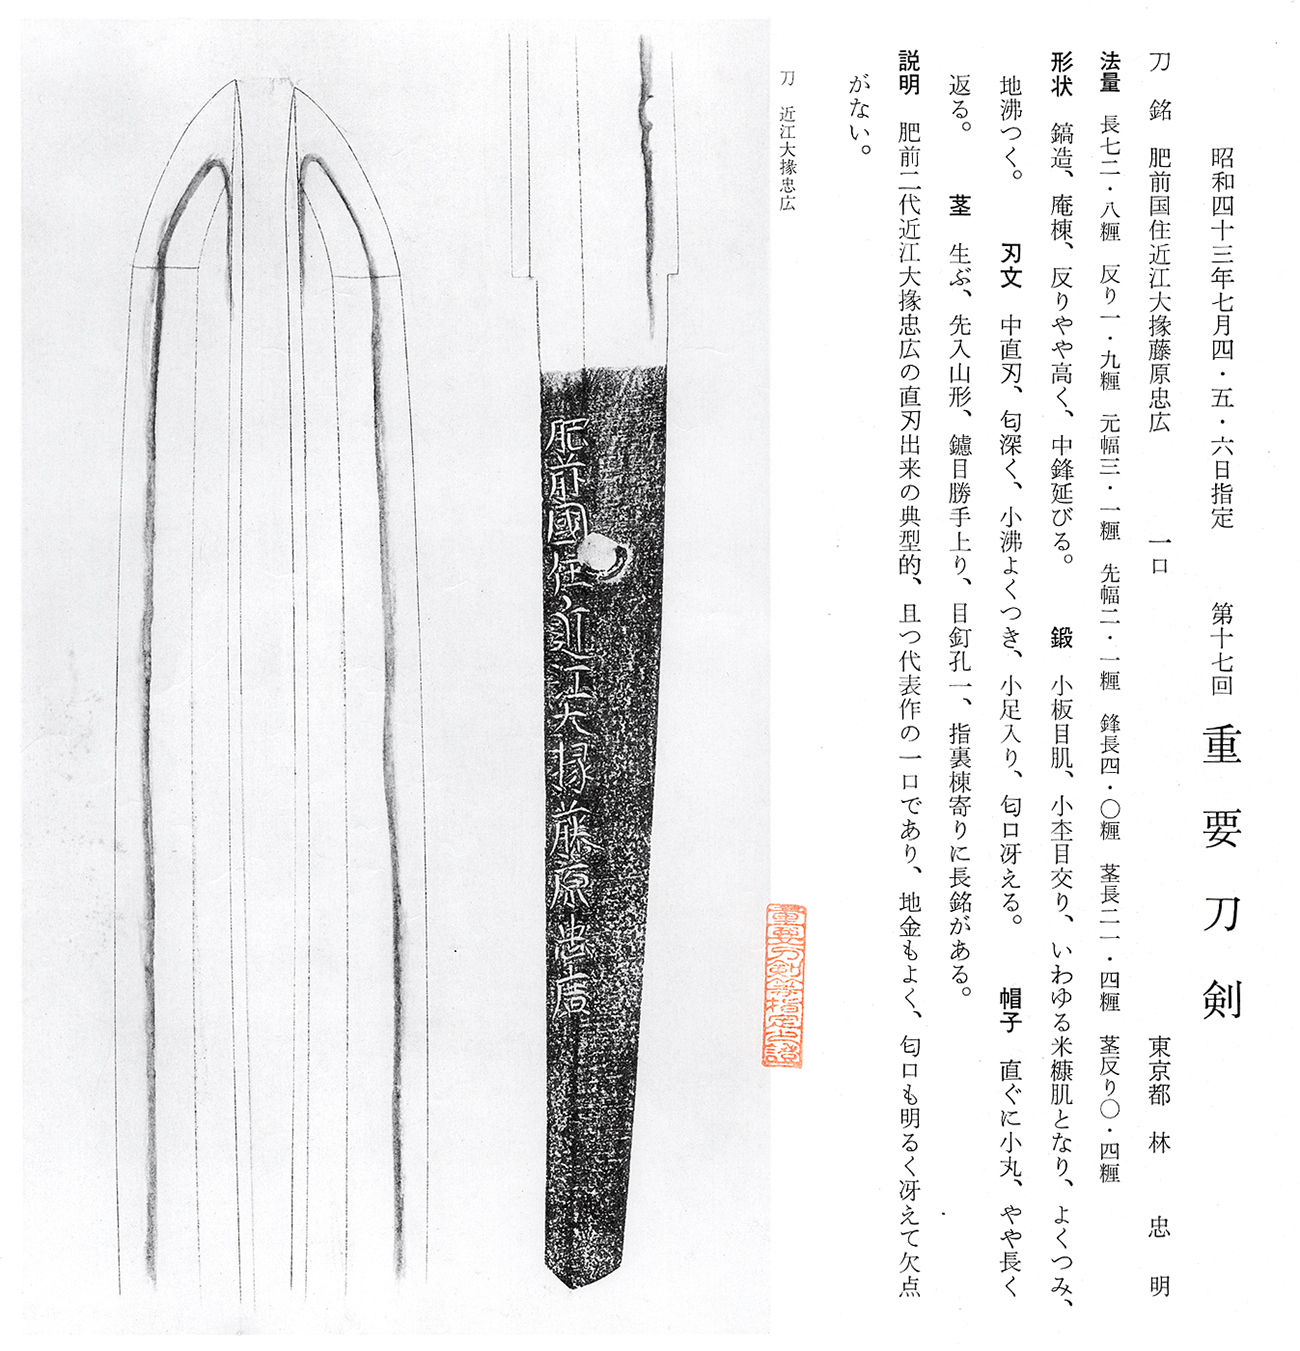 昭和四十三年七月四・五・六日指定　第十七回　重要刀剣
刀　銘　肥前国住近江大掾藤原忠広　一口　東京都　林　忠明
法量　長七二・八糎　反り一・九糎　元幅三・一糎　先幅二・一糎　鋒長四・〇糎　茎長二一・四糎　茎反り〇・四糎
形状　鎬造、庵棟、反りやや高く、中鋒延びる。　鍛　小板目肌、小杢目交り、いわゆる米糠肌となり、よくつみ、
地沸つく。　刃文　中直刃、匂深く、小沸よくつき、小足入り、匂口冴える。　帽子　直ぐに小丸、やや長く
返る。　茎　生ぶ、先入山形、鑢目勝手上り、目釘孔一、指裏棟寄りに長銘がある。
説明　肥前二代近江大掾忠広の直刃出来の典型的、且つ代表作の一口であり、地金もよく、匂口も明るく冴えて欠点
がない。
刀　近江大掾忠広
重要刀剣等指定之證
肥前國住近江大掾藤原忠廣